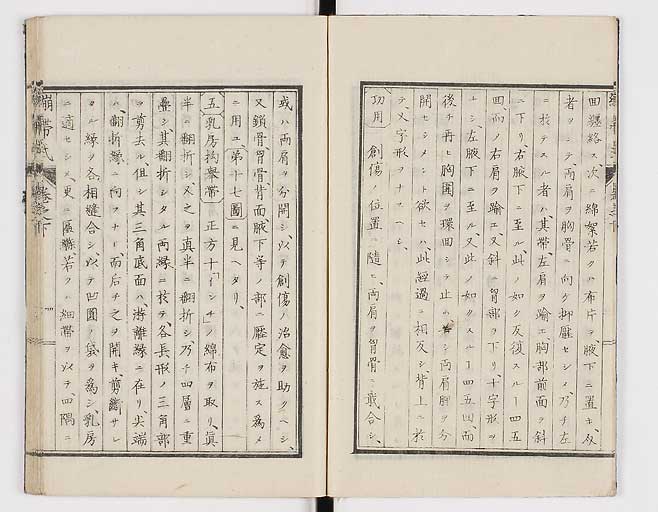 回纏絡ス次ニ綿絮若クハ布片ヲ腋下ニ置キ
者ヲシテ両肩ヲ胸骨ニ向ケ抑壓セシメ乃チ左
ニ於テスル者ハ其帯左肩ヲ踰エ胸部前面ヲ斜
ニ下リ右腋下ニ至ル此ノ如ク反復スルヿ四五
回而ノ右肩ヲ踰エ又斜ニ胷部ヲ下リ十字形ヲ
ナシ左腋下ニ至ル又此ノ如クスルヿ四五回而
後チ再ヒ胸圍ヲ環回シテ止ム若シ両肩胛ヲ分
開セシメント欲セハ此経過ニ相反シ背上ニ於
テ乂字形ヲナスヘシ
功用 創傷ノ位置ニ隨ヒ両肩ヲ胷骨ニ戢合シ
或ハ両肩ヲ分開シ以テ創傷ノ治愈ヲ助クヘシ
又鎖骨胷骨背面腋下等ノ部ニ壓定ヲ施ス為メ
ニ用ユ第十七圖ニ見ヘタリ
五乳房拘擧帯 正方十「インチ」ノ綿布ヲ取リ眞
半ニ翻折シ又之ヲ真半ニ翻折シ乃チ四層ニ重
疊シ其翻折シタル両縁ニ於テ各長形ノ三角部
ヲ剪去ル但シ其三角底面ハ游離縁ニ在リ尖端
ハ翻折縁ニ向フナリ而后チ之ヲ開キ剪斷サレ
タル縁ヲ各相縫合シ以テ凹圓ノ袋ヲ為シ乳房
ニ適セシメ更ニ匾縧若クハ細帯ヲ以テ四隅ニ
繃帯氏 巻之下